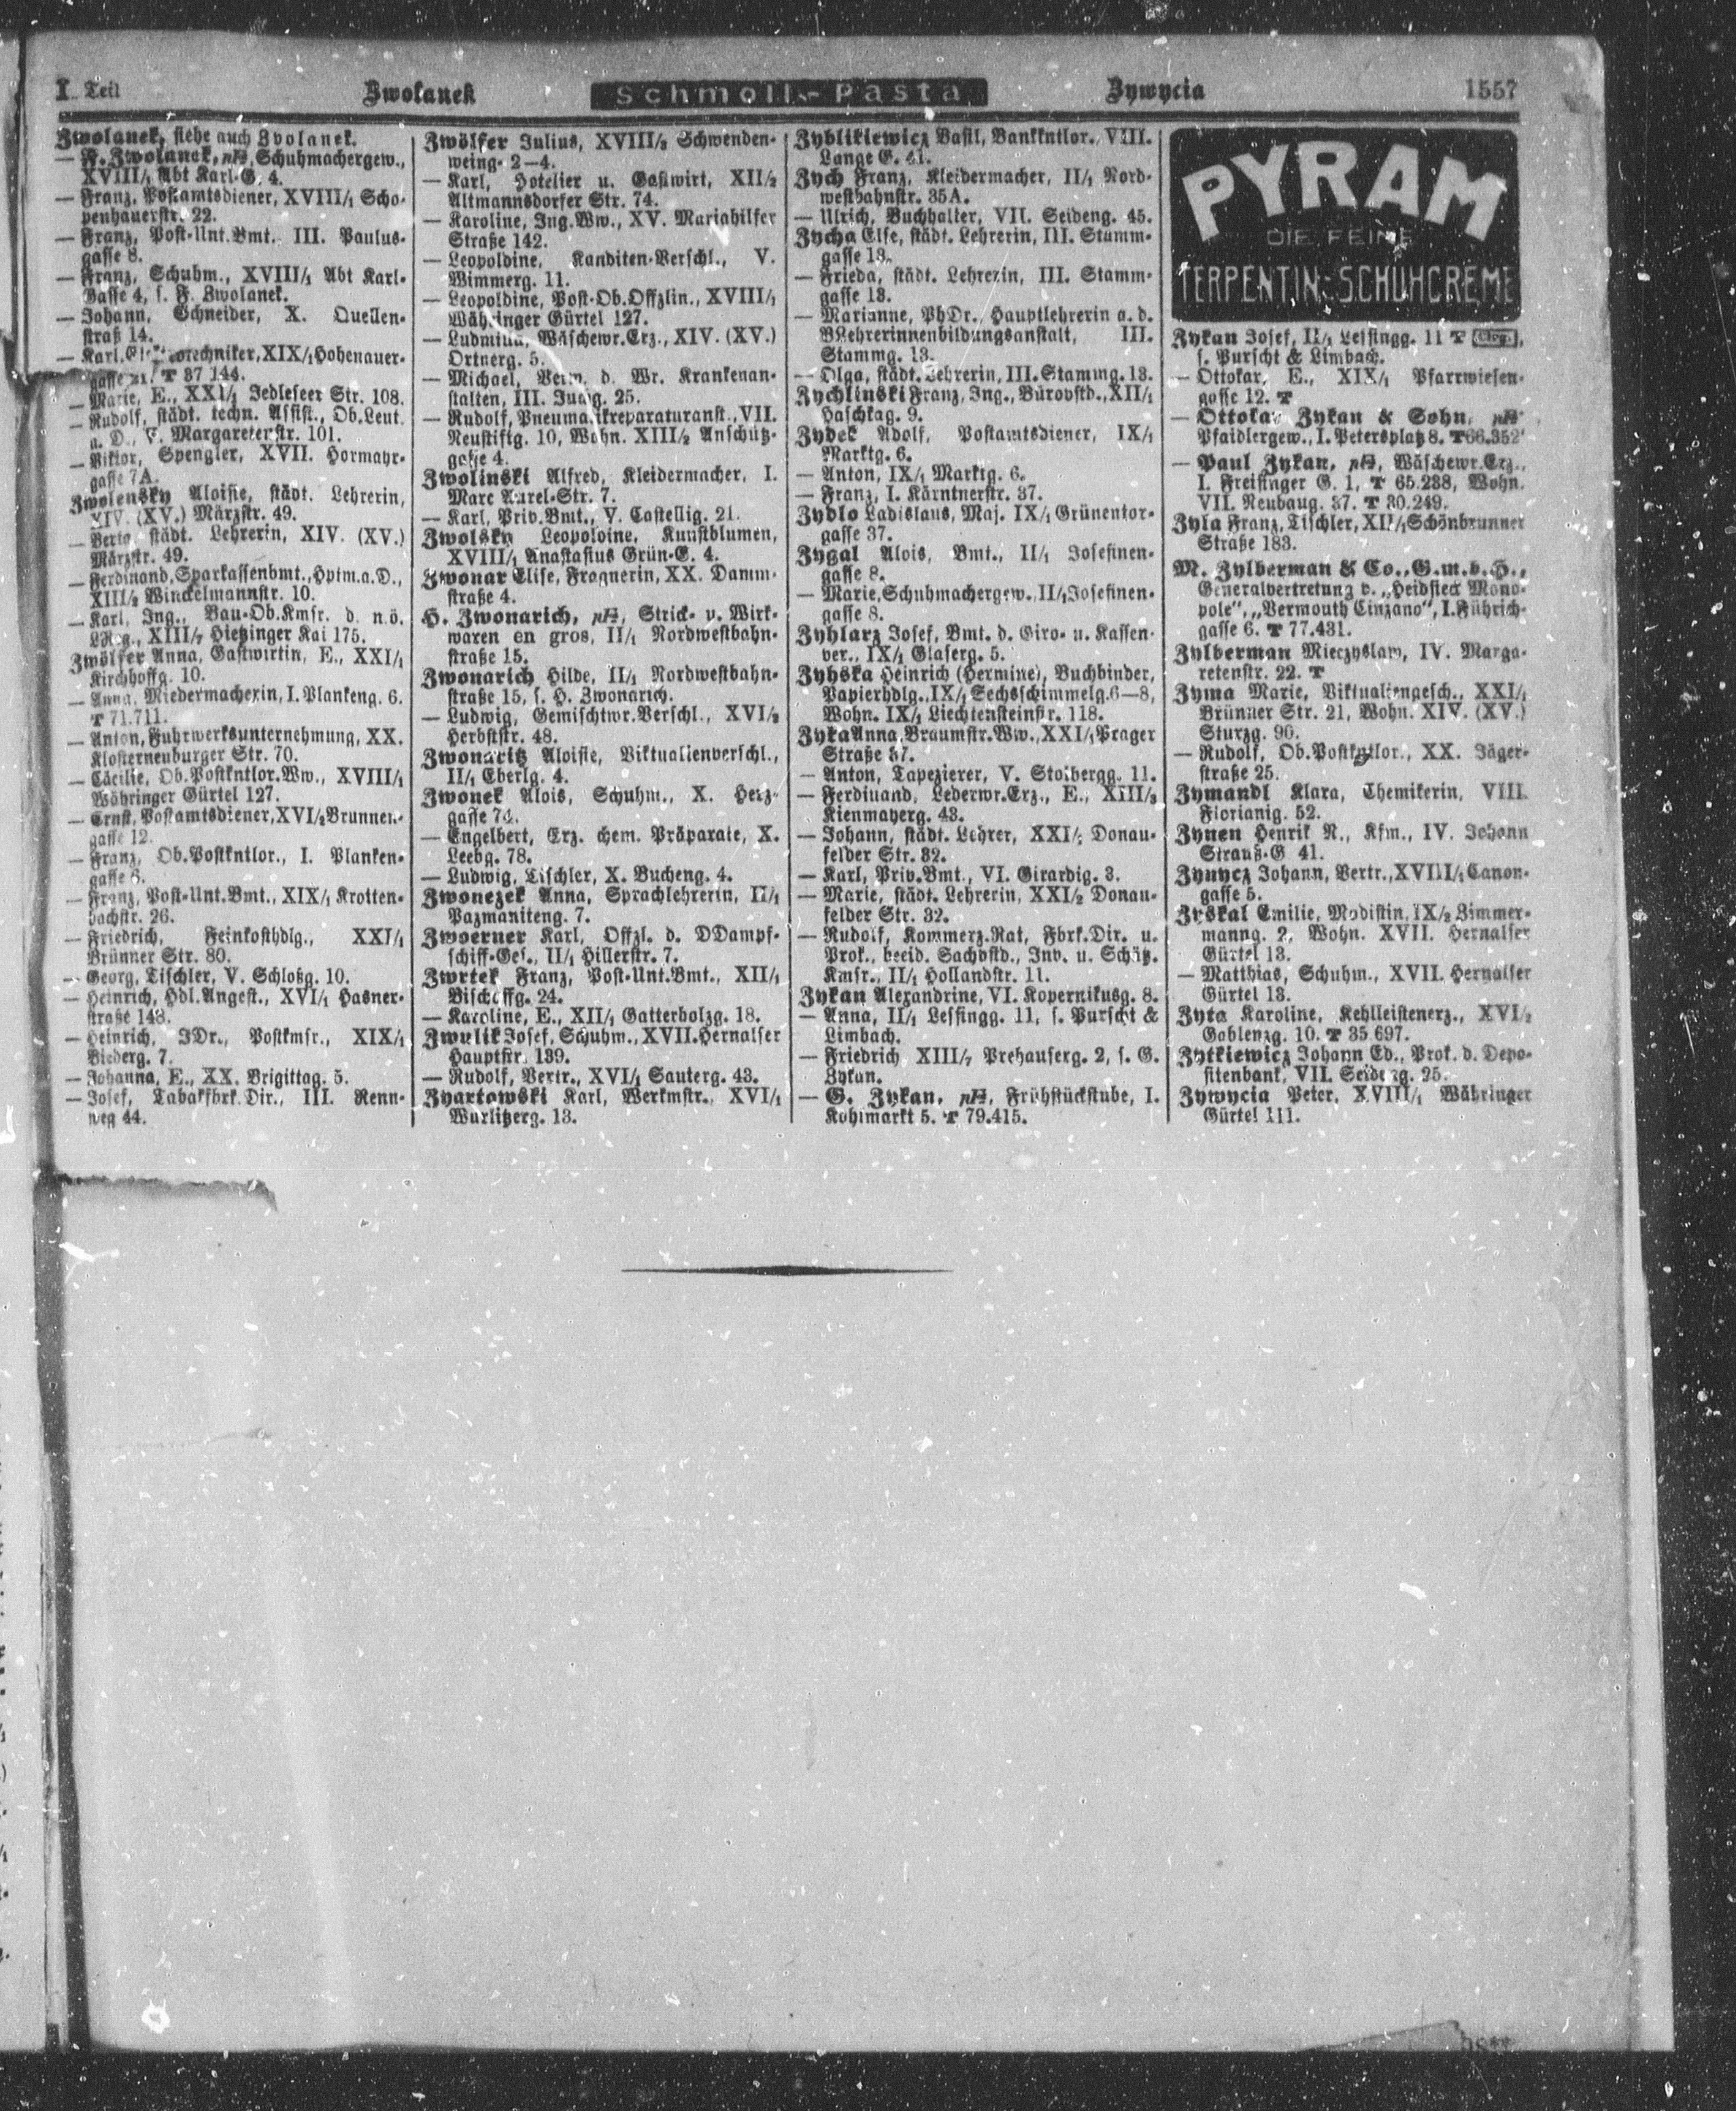 I. Teil
Zwolanek
Schmoll-Pasta
Zywycia
1557
Zwolanek, siehe auch Zvolanek.
— F. Zwolanek, Schuhmachergew.,
XVIII/1 Abt Karl-G. 4.
— Franz, Postamtsdiener, XVIII/1 Scho-
penhauerstr. 22.
— Franz, Post-Unt.Bmt. III. Paulus-
gasse 8.
— Franz, Schuhm., XVIII/1 Abt Karl-
Gasse 4, s. F. Zwolanek.
— Johann, Schneider, X. Quellen-
straß 14.
— Karl, XIX/1 Hohenauer-
gasse T 37 144.
— Marie, E., XXI/1 Jedleseer Str. 108.
— Rudolf, städt. techn. Assist., Ob.Leut.
a. D., V. Margaretenstr. 101.
— Viktor, Spengler, XVII. Hormayr-
gasse 7A.
Zwolensky Aloisie, städt. Lehrerin,
XIV. (XV.) Märzstr. 49.
— Berta, städt. Lehrerin, XIV. (XV.)
Märzstr. 49.
— Ferdinand, Sparkassenbmt., Hptm.a.D.,
XIII/2 Winckelmannstr. 10.
— Karl, Ing., Bau-Ob.Kmsr. d. n.ö.
LReg., XIII/7 Hietzinger Kai 175.
Zwölfer Anna, Gastwirtin, E., XXI/1
Kirchhoffg. 10.
— Anna, Miedermacherin, I. Plankeng. 6.
T 71.711.
— Anton, Fuhrwerksunternehmung, XX.
Klosterneuburger Str. 70.
— Cäcilie, Ob.Postkntlor.Ww., XVIII/1
Währinger Gürtel 127.
— Ernst, Postamtsdiener, XVI/2 Brunnen-
gasse 12.
— Franz, Ob.Postkntlor., I. Planken-
gasse 6.
— Franz, Post-Unt.Bmt., XIX/1 Krotten-
bachstr. 26.
— Friedrich, Feinkosthdlg., XXI/1
Brünner Str. 80.
— Georg, Tischler, V. Schloßg. 10.
— Heinrich, Hdl.Angest., XVI/1 Hasner-
straße 148.
— Heinrich, JDr., Postkmsr., XIX/1
Biederg. 7.
— Johanna, E., XX. Brigittag. 5.
— Josef, Tabakfbrk.Dir., III. Renn-
weg 44.
Zwölfer Julius, XVIII/2 Schwenden-
weing. 2—4.
— Karl, Hotelier u. Gastwirt, XII/2
Altmannsdorfer Str. 74.
— Karoline, Ing.Ww., XV. Mariahilfer
Straße 142.
— Leopoldine, Kanditen-Verschl., V.
Wimmerg. 11.
— Leopoldine, Post-Ob.Offzlin., XVIII/1
Währinger Gürtel 127.
— Ludmilla, Wäschewr.Erz., XIV. (XV.)
Ortnerg. 5.
— Michael, Verw. d. Wr. Krankenan-
stalten, III. Juchg. 25.
— Rudolf, Pneumatikreparaturanst., VII.
Neustiftg. 10, Wohn. XIII/2 Anschütz-
gasse 4.
Zwolinski Alfred, Kleidermacher, I.
Marc Aurel-Str. 7.
— Karl, Priv.Bmt., V. Castellig. 21.
Zwolsky Leopoldine, Kunstblumen,
XVIII/1 Anastasius Grün-G. 4.
Zwonar Elise, Fragnerin, XX. Damm-
straße 4.
H. Zwonarich, Strick- u. Wirk-
waren en gros, II/1 Nordwestbahn-
straße 15.
Zwonarich Hilde, II/1 Nordwestbahn-
straße 15, s. H. Zwonarich.
— Ludwig, Gemischtwr.Verschl., XVI/2
Herbststr. 48.
Zwonaritz Aloisie, Viktualienverschl.,
II/1 Eberlg. 4.
Zwonek Alois, Schuhm., X. Herz-
gasse
— Engelbert, Erz. chem. Präparate, X.
Leebg. 78.
— Ludwig, Tischler, X. Bucheng. 4.
Zwonezek Anna, Sprachlehrerin, II/1
Pazmaniteng. 7.
Zwoerner Karl, Offzl. d. DDampf-
schiff-Ges., II/1 Hillerstr. 7.
Zwrtek Franz, Post-Unt.Bmt., XII/1
Bischoffg. 24.
— Karoline, E., XII/1 Gatterholzg. 18.
Zwulik Josef, Schuhm., XVII. Hernalser
Hauptstr. 139.
— Rudolf, Vertr., XVI/1 Sauterg. 43.
Zyartowski Karl, Werkmstr., XVI/1
Wurlitzerg. 13.
Zyblikiewicz Basil, Bankkntlor., VIII.
Lange G.
Zych Franz, Kleidermacher, II/1 Nord-
westbahnstr. 35A.
— Ulrich, Buchhalter, VII. Seideng. 45.
Zycha Else, städt. Lehrerin, III. Stamm-
gasse 13.
— Frieda, städt. Lehrerin, III. Stamm-
gasse 13.
— Marianne, PhDr., Hauptlehrerin a. d.
BLehrerinnenbildungsanstalt, III.
Stammg. 13.
— Olga, städt. Lehrerin, III. Stammg. 13.
Zychlinski Franz, Ing., Bürovstd., XII/1
Haschkag. 9.
Zydek Adolf, Postamtsdiener, IX/1
Marktg. 6.
— Anton, IX/1 Marktg. 6.
— Franz, I. Kärntnerstr. 37.
Zydlo Ladislaus, Maj. IX/1 Grünentor-
gasse 37.
Zygal Alois, Bmt., II/1 Josefinen-
gasse 8.
— Marie, Schuhmachergew., II/1 Josefinen-
gasse 8.
Zyhlarz Josef, Bmt. d. Giro- u. Kassen-
ver., IX/1 Glaserg. 5.
Zyhska Heinrich (Hermine), Buchbinder,
Papierhdlg., IX/1 Sechsschimmelg. 6—8,
Wohn. IX/1 Liechtensteinstr. 118.
Zyka Anna, Braumstr.Ww., XXI/1 Prager
Straße
— Anton, Tapezierer, V. Stolbergg. 11.
— Ferdinand, Lederwr.Erz., E., XIII/3
Kienmayerg. 43.
— Johann, städt. Lehrer, XXI/2 Donau-
felder Str. 32.
— Karl, Priv.Bmt., VI. Girardig. 3.
— Marie, städt. Lehrerin, XXI/2 Donau-
felder Str. 32.
— Rudolf, Kommerz.Rat, Fbrk.Dir. u.
Prok., beeid. Sachvstd., Inv. u. Schätz.
Kmsr., II/1 Hollandstr. 11.
Zykan Alexandrine, VI. Kopernikusg. 8.
— Anna, II/1 Lessingg. 11, s. Purscht &
Limbach.
— Friedrich XIII/7 Prehauserg. 2, s. G.
Zykan.
— G. Zykan, Frühstückstube, I.
Kohlmarkt 5. T 79.415.
PYRAM
DIE FEINE
TERPENTIN-SCHUHCREME
Zykan Josef, II/1 Lessingg. 11 T
s. Purscht & Limbach.
— Ottokar, E., XIX/1 Pfarrwiesen-
gasse 12. T
— Ottokar Zykan & Sohn,
Pfaidlergew., I. Petersplatz 8. T 66.352
— Paul Zykan, Wäschewr.Erz.,
I. Freisinger G. 1, T 65.238, Wohn.
VII. Neubaug. 37. T 30.249.
Zyla Franz, Tischler, XII/1 Schönbrunner
Straße 183.
M. Zylberman & Co., G.m.b.H.,
Generalvertretung v. „Heidsieck Mono-
pole“, „Vermouth Cinzano“, I. Führich-
gasse 6. T 77.431.
Zylberman Mieczyslaw, IV. Marga-
retenstr. 22. T
Zyma Marie, Viktualiengesch., XXI/1
Brünner Str. 21, Wohn. XIV. (XV.)
Sturzg. 90.
— Rudolf, Ob.Postkntlor., XX. Jäger-
straße 25.
Zymandl Klara, Chemikerin, VIII.
Florianig. 52.
Zynen Henrik N., Kfm., IV. Johann
Strauß-G 41.
Zynycz Johann, Vertr., XVIII/1 Canon-
gasse 5.
Zrskal Emilie, Modistin, IX/2 Zimmer-
manng. 2, Wohn. XVII. Hernalser
Gürtel 13.
— Matthias, Schuhm., XVII. Hernalser
Gürtel 13.
Zyta Karoline, Kehlleistenerz., XVI/2
Gablenzg. 10. T 35 697.
Zytkiewicz Johann Ed., Prok. d. Depo-
sitenbank, VII. Seideng. 25.
Zywycia Peter, XVIII/1 Währinger
Gürtel 111.